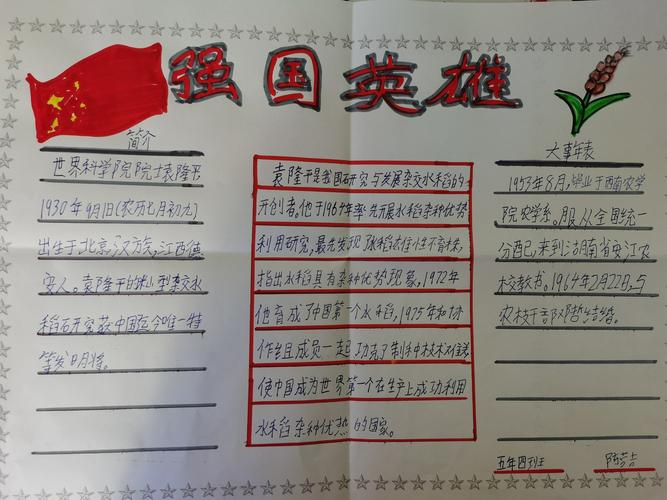 强国英雄
简介
世界科学院院士袁隆平
1930年9月1日(农历七月初九)
出生于北京,汉族,江西德
安人。袁隆平的籼型杂交水
稻研究获中国迄今唯一特
等发明将。
袁隆平是我国研究与发展杂交水稻的
开创者,他于1964年率先开展水稻杂种优势
利用研究,最先发现水稻雄性不育株,
指出水稻具有杂种优势现象,1972年
他育成了中国第一个水稻,1975年和协
作组成员一起攻克了制种技术难关
使中国成为世界第一个在生产上成功利用
水稻杂种优热的国家。
大事年表
1953年8月,毕业于西南农学
院农学系。服从全国统一
分配,来到湖南省安江农
校教书。1964年2月22日,与
农技干部邓哲结婚。
五年四班